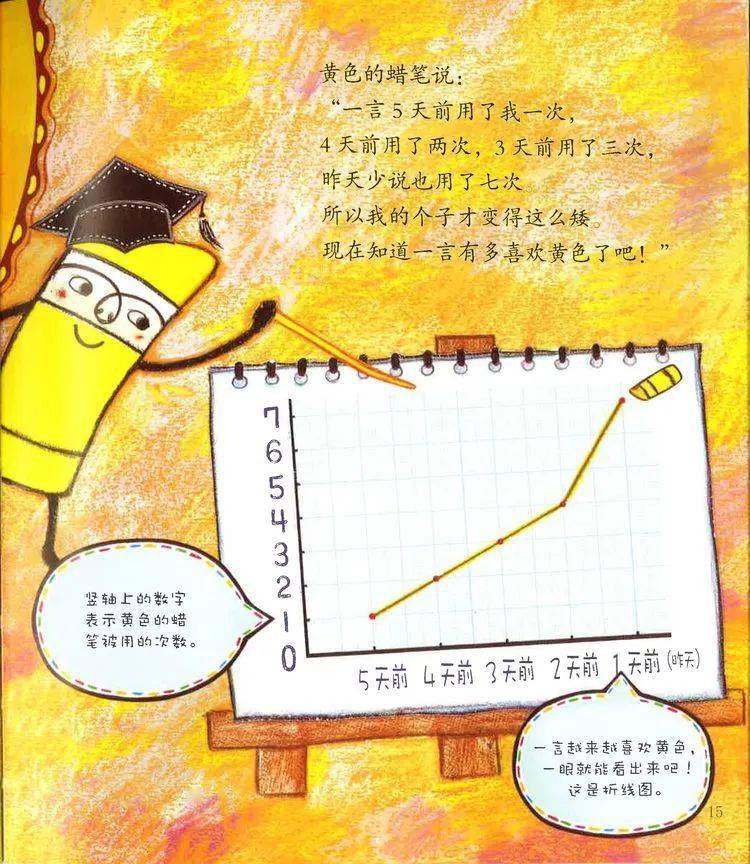 黄色的蜡笔说：
“一言5天前用了我一次，
4天前用了两次，3天前用了三次，
昨天少说也用了七次。
所以我的个子才变得这么矮。
现在知道一言有多喜欢黄色了吧！”
7
6
5
4
3
2
1
0
5天前 4天前 3天前 2天前 1天前(昨天)
竖轴上的数字
表示黄色的蜡
笔被用的次数。
一言越来越喜欢黄色，
一眼就能看出来吧！
这是折线图。
15